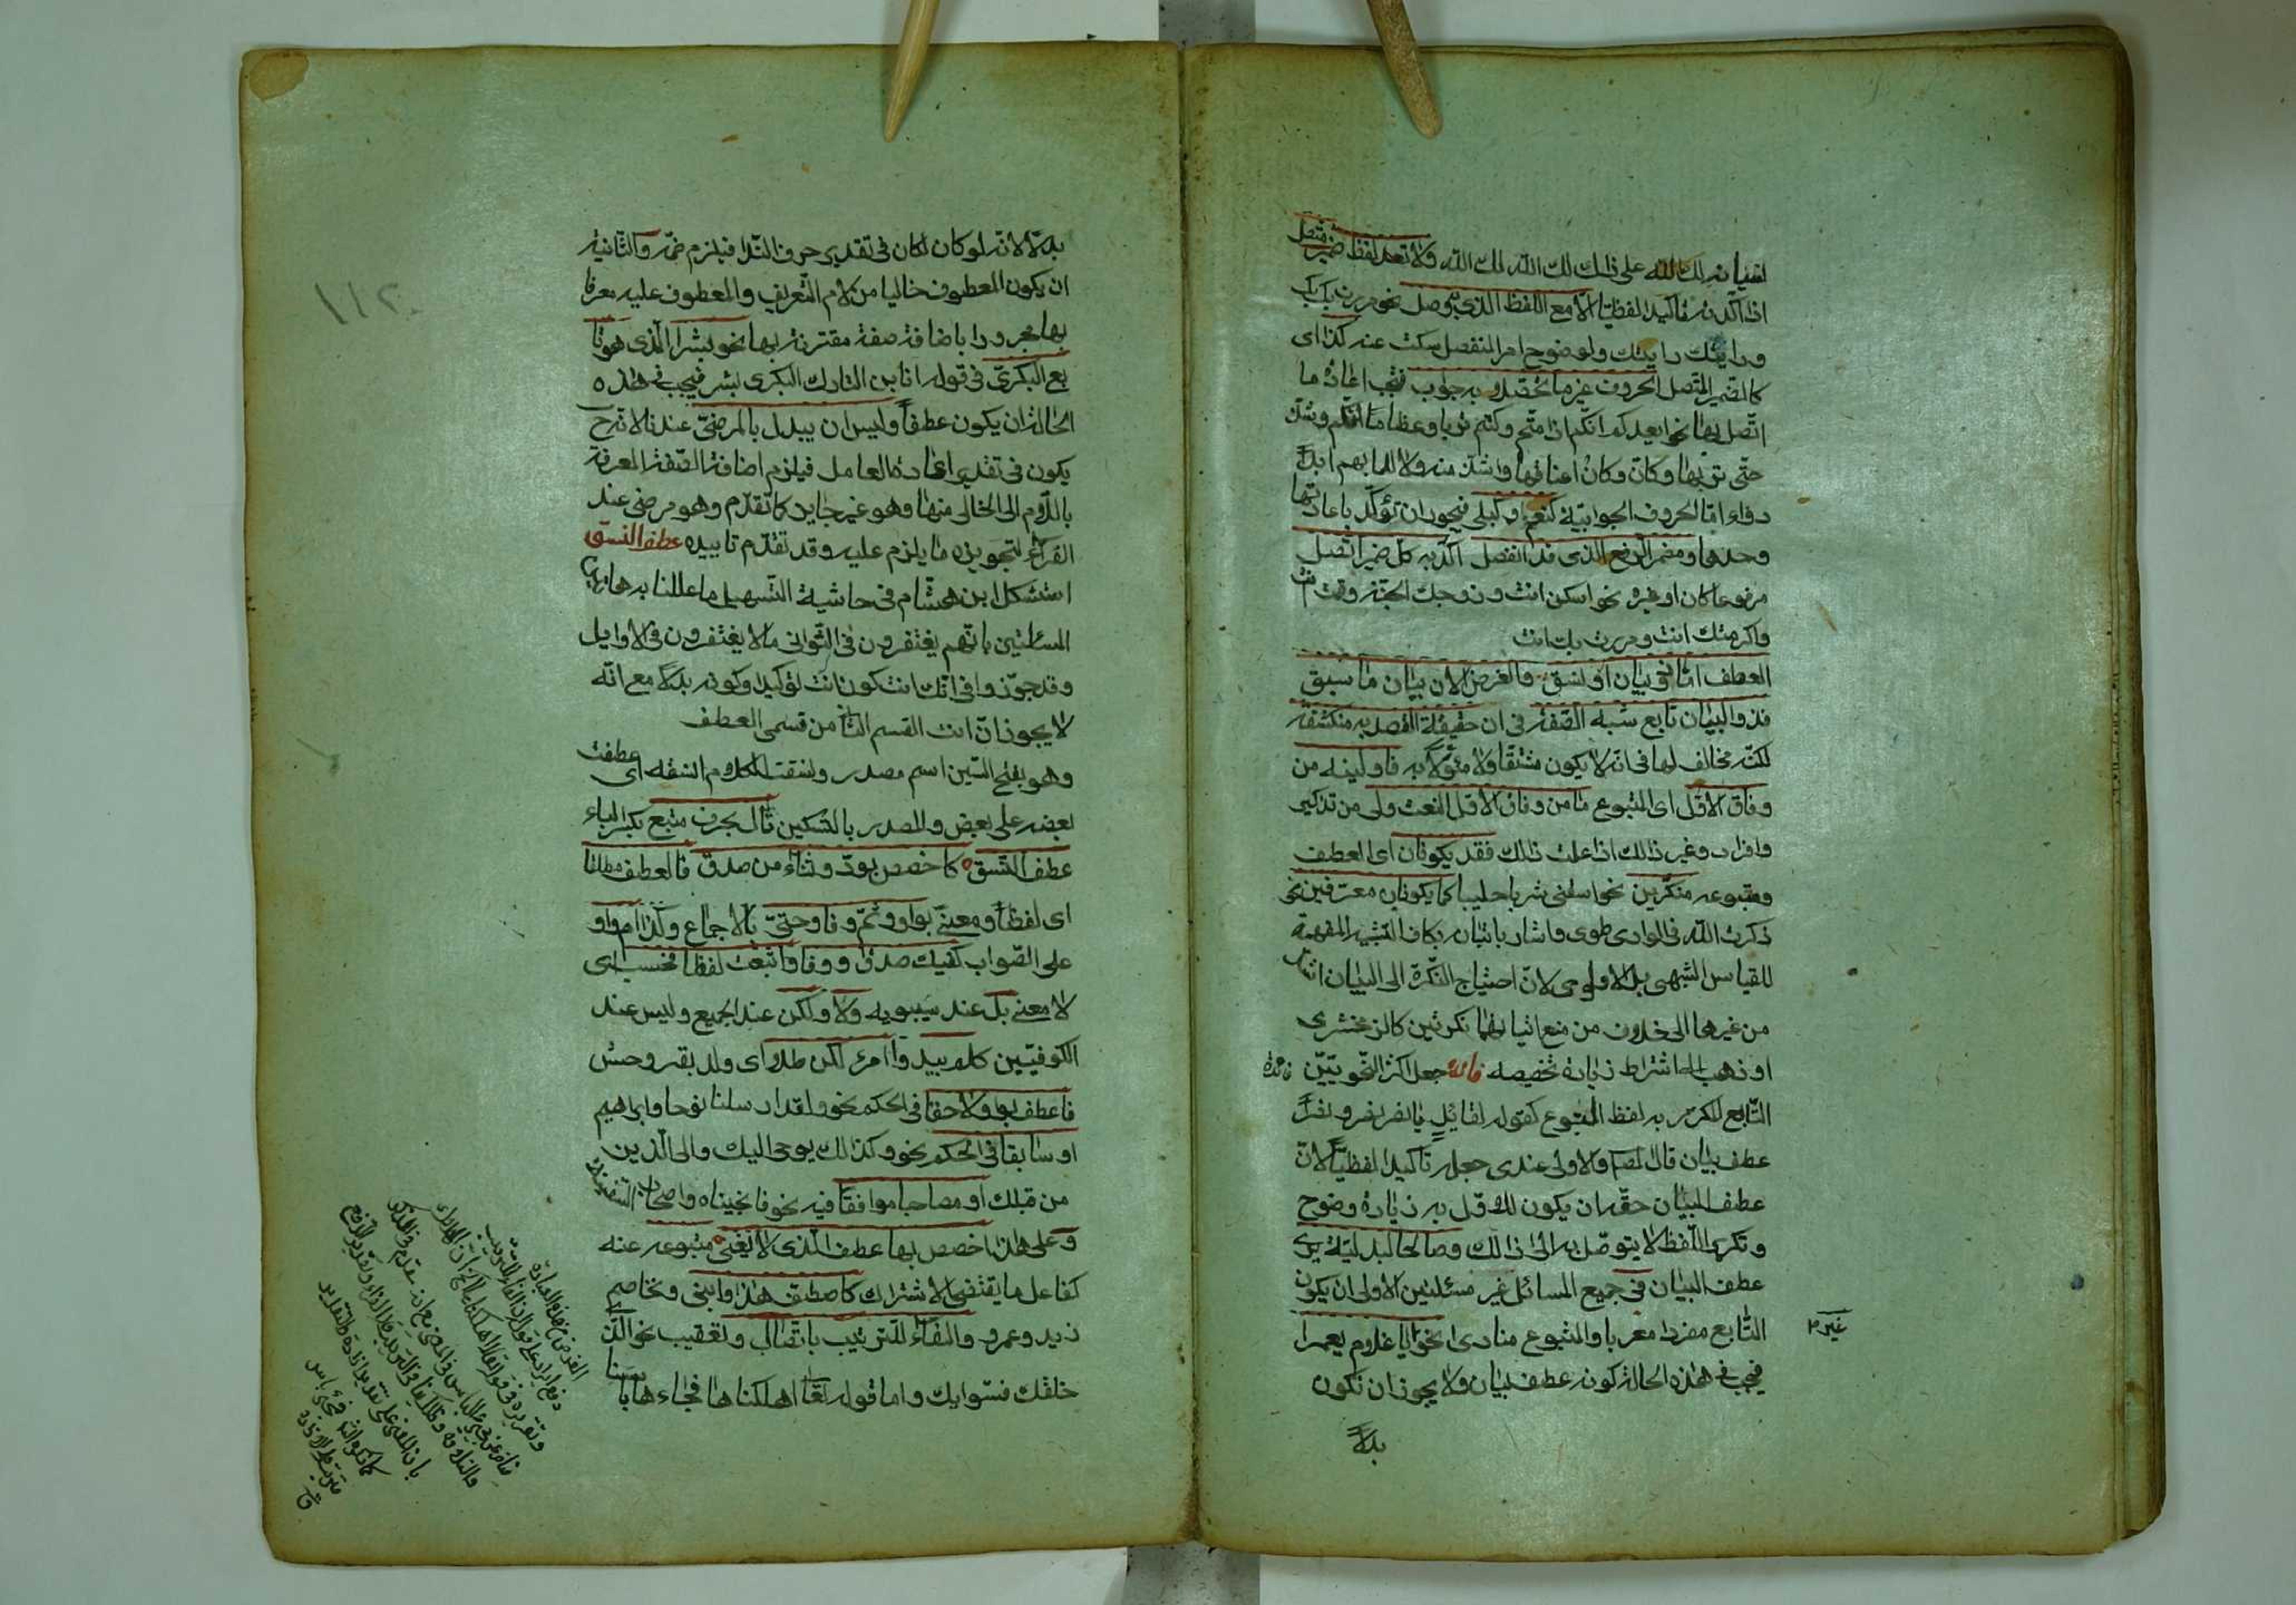 لقيانه لك الله على ذاك لك الله لك الله ولا تعد لفظ ضمير متصل
اذا اكّدته تاكيدا لفظيّا الا مع اللفظ الذى به وصل نحو مررت بك بك
ورايتك رايتك ولوضوح امر المنفصل سكت عنه كذا اى
كالضمير المتصل الحروف غير ما تحصّل به جواب فيجب اعادة ما
اتّصل بها نحو ايعدكم انّكم اذا متّم وكنتم ترابا وعظاما انّكم وشذّ
حتّى تريها وكانّ وكانّ اعناقها واشذّ منه ولا للما بهم ابدا
دواء امّا الحروف الجوابيّة كنعم وكبلى فيجوز ان تؤكّد باعادتها
وحدها ومضمر الرفع الذى قد انفصل اكّد به كلّ ضمير اتّصل
مرفوعا كان او غيره نحو اسكن انت وزوجك الجنّة وقمت انت
واكرمتك انت ومررت بك انت
العطف امّا ذو بيان او نسق والغرض الان بيان ما سبق
فذو البيان تابع شبه الصّفة فى ان حقيقة القصد به منكشفة
لكنّه مخالف لها فى انّه لا يكون مشتقّا ولا مئوّلا به فاولينه من
وفاق الاوّل اى المتبوع ما من وفاق الاوّل النعت ولى من تذكير
وافراد وغير ذلك اذا علمت ذلك فقد يكونان اى العطف
ومتبوعه منكّرين نحو اسقنى شربا حليبا كما يكونان معرّفين نحو
ذكرت الله فى الوادى طوى واشار باتيانه بكاف التشبيه المفهمة
للقياس الشبهى بل الاولوى لانّ احتياج النّكرة الى البيان اشدّ
من غيرها الى خلاف من منع اتيانهما نكرتين كالزمخشرى
او ذهب الى اشتراط زيادة تخصيصه فائدة جعل اكثر النّحويّين
فائدة
التّابع المكرّر به لفظ المتبوع كقوله لقائل يا نصر نصر نصرا
عطف بيان قال المصـ والاولى عندى جعله تاكيدا لفظيّا لانّ
عطف البيان حقّه ان يكون للاوّل به زيادة وضوح
وتكرير اللّفظ لا يتوصّل به الى ذلك وصالحا لبدليّة يرى
عطف البيان فى جميع المسائل غير مسئلتين الاولى ان يكون
التّابع مفردا معربا والمتبوع منادى نحو يا غلام يعمرا
غير م
فيجب فى هذه الحالة كونه عطف بيان ولا يجوز ان تكون
بدلا
١١٢
بدلا لانّه لو كان لكان فى تقدير حرف النّدا فيلزم ضمّه والثّانية
ان يكون المعطوف خاليا من لام التّعريف والمعطوف عليه معرفا
بها مجرورا باضافة صفة مقترنة بها نحو بشر الّذى هو تا
بع البكرىّ فى قوله انا بن التارك البكرى بشر فيجب فى هذه
الحالة ان يكون عطفا وليس ان يبدل بالمرضىّ عندنا لانّه ح
يكون فى تقدير اعادة العامل فيلزم اضافة الصّفة المعرفة
باللّام الى الخالى منها وهو غير جايز كما تقدّم وهو مرضى عند
الفرّاء لتجويزه ما يلزم عليه وقد تقدّم تاييده عطف النسق
استشكل ابن هشام فى حاشية التّسهيل ما عللنا به هاتين
المسئلتين بانّهم يغتفرون فى الثّوانى ما لا يغتفرون فى الاوايل
وقد جوّزوا فى انّك انت كون انت توكيدا وكونه بدلا مع انّه
لا يجوز انّ انت القسم الثّانى من قسمى العطف
وهو بفتح السّين اسم مصدر ونسقت الكلام انسقه اى عطفت
بعضه على بعض والمصدر بالتّسكين تال بحرف متبع بكسر الباء
عطف النّسق كاخصص بودّ وثناء من صدق فالعطف مطلقا
اى لفظا ومعنى بواو وثمّ وفا وحتّى بالاجماع وكذا ام واو
على الصّواب كفيك صدق ووفا واتبعت لفظا فحسب اى
لا معنى بل عند سيبويه ولا ولكن عند الجميع وليس عند
الكوفيّين كلم يبد واامرء لكن طلا اى ولد بقر وحش
فاعطف بواو لاحقا فى الحكم نحو ولقد ارسلنا نوحا وابراهيم
او سابقا فى الحكم نحو وكذلك يوحى اليك والى الّذين
من قبلك او مصاحبا موافقا فيه نحو فانجيناه واصحاب السّفينة
وعلى هذا اخصص بها عطف الّذى لا يغنى متبوعه عنه
كفاعل ما يقتضى الاشتراك كاصطفّ هذا وابنى وتخاصم
زيد وعمرو والفاء للتّرتيب باتّصال وتعقيب نحو الّذى
خلقك فسوّايك واما قوله تعا اهلكناها فجاءها باسنا